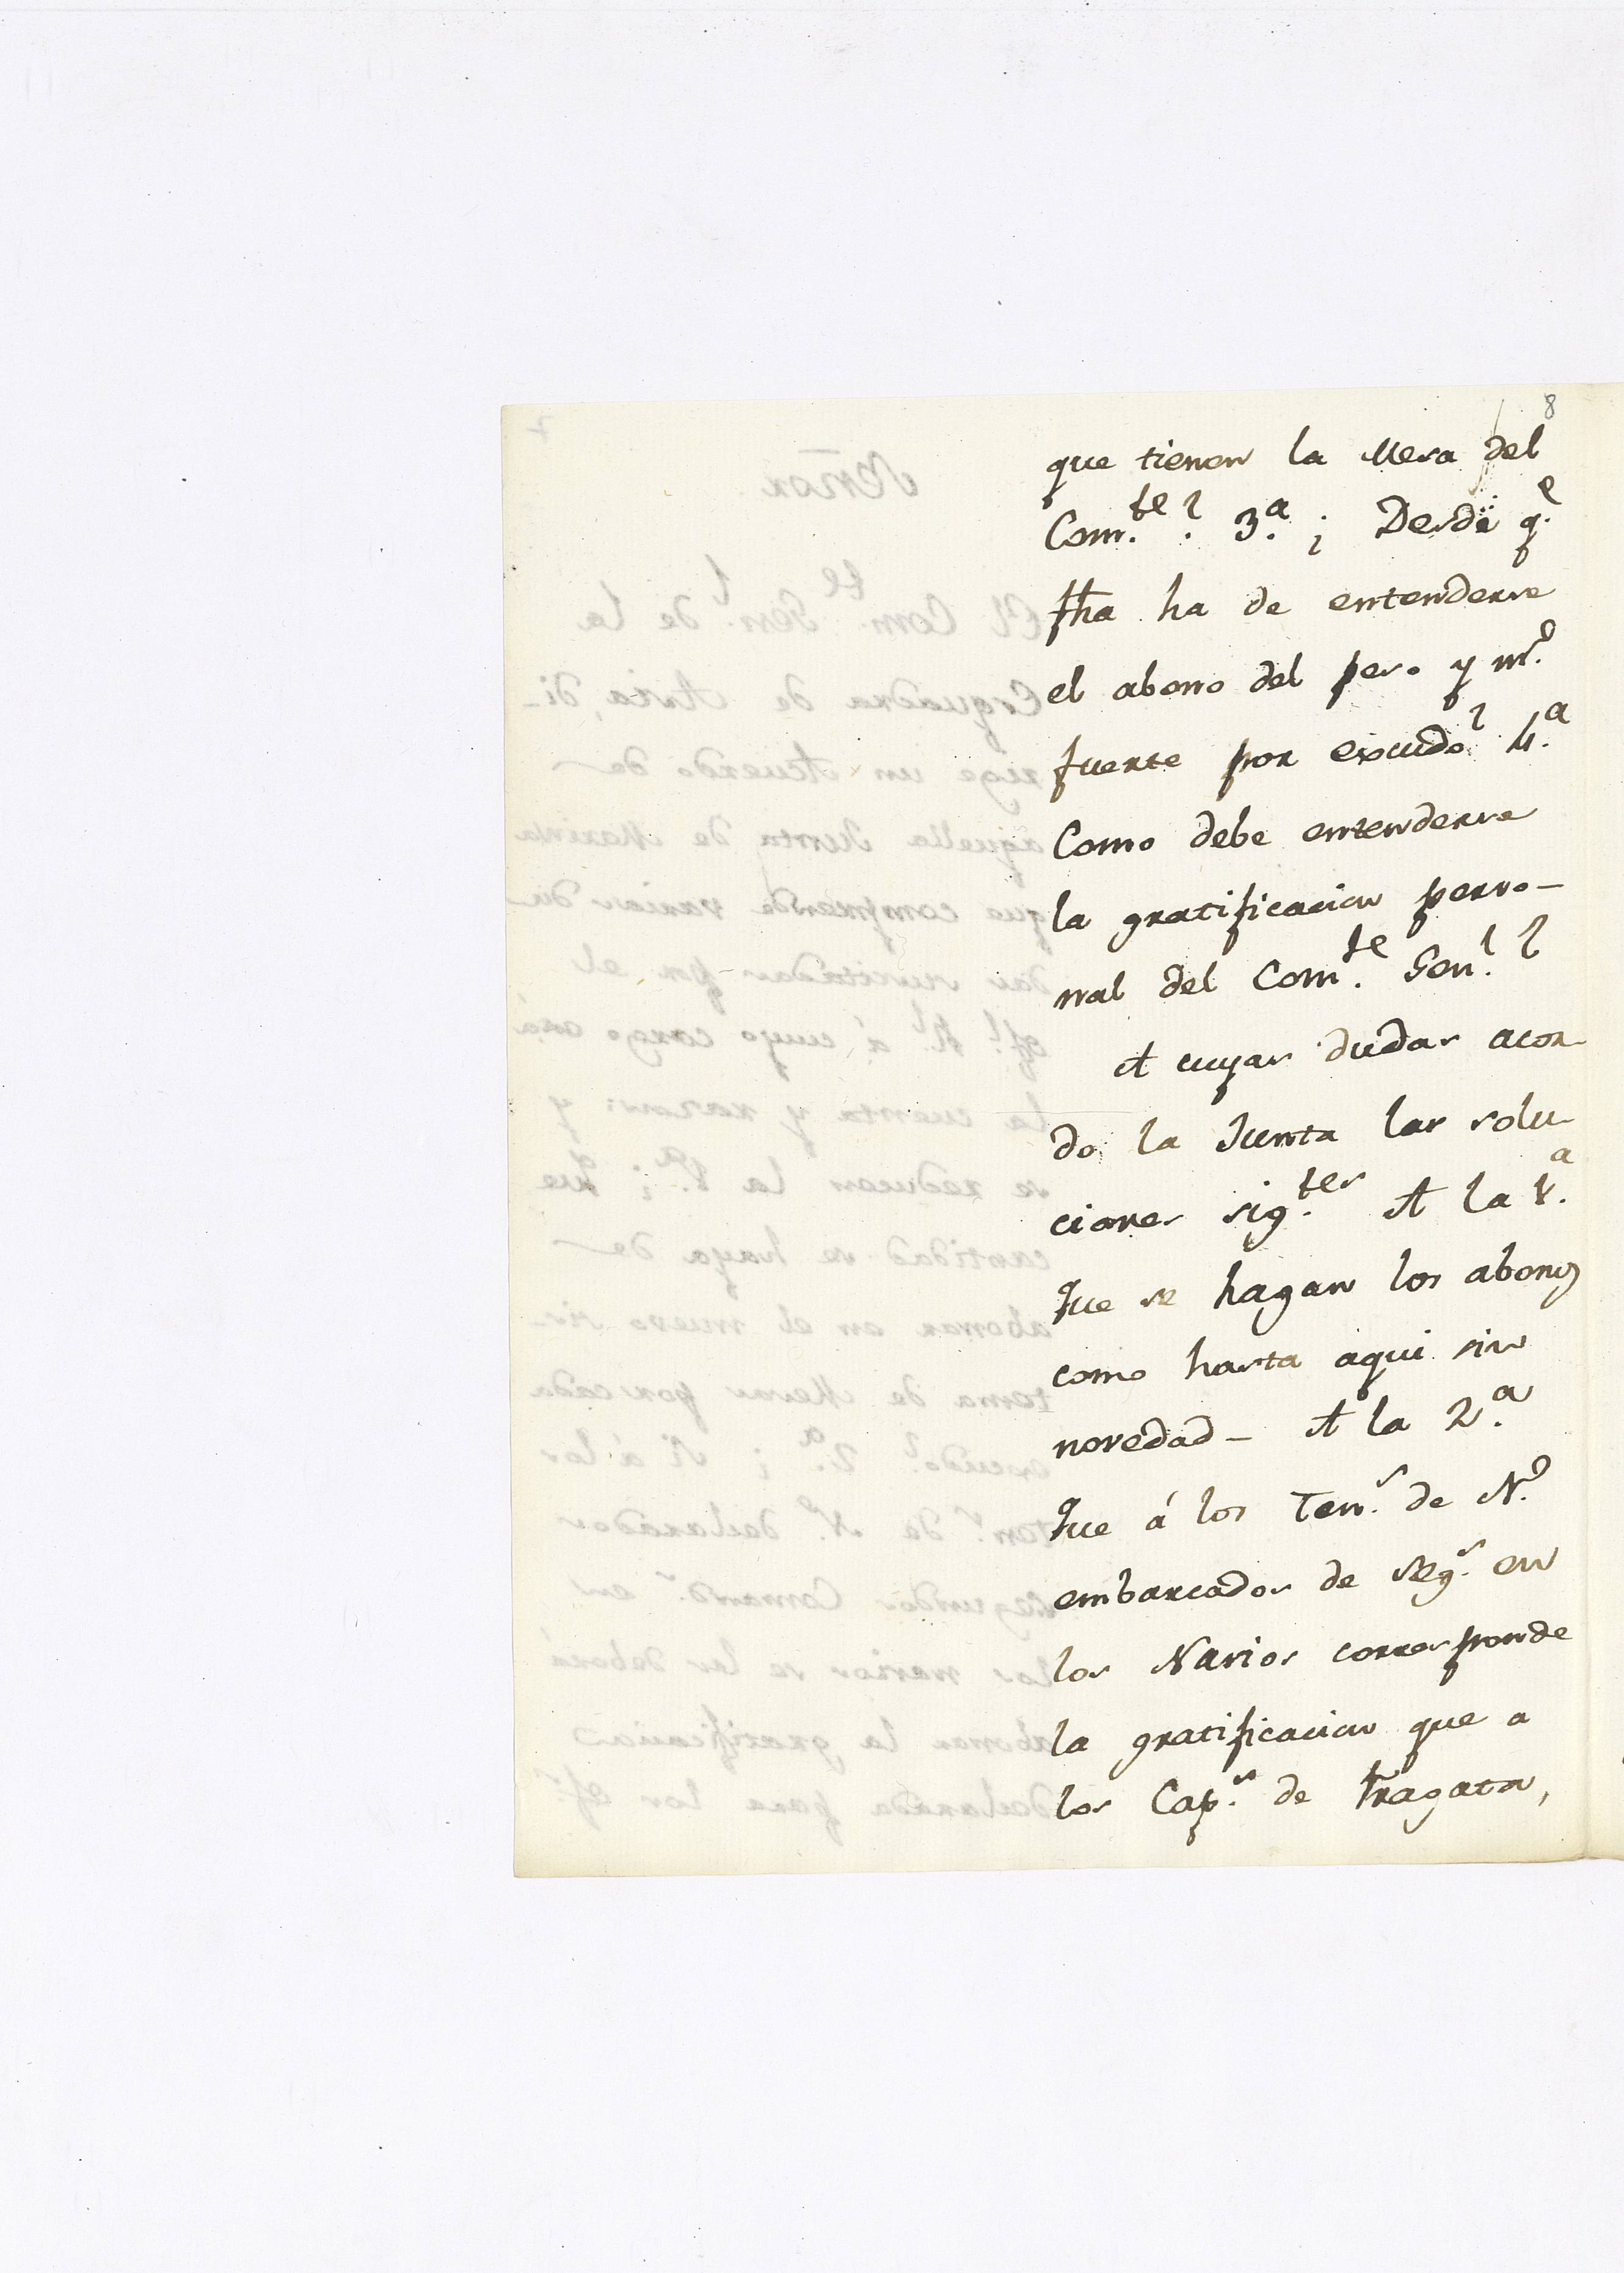 8
que tienen la Mesa del
Com.te? 3.a ¿ Desde q.e
fha ha de entenderse
el abono del peso y m.o
fuerte por escudo? 4.a
Como debe entenderse
la gratificacion perso-
nal del Com.te Gen.l?
A cuyas dudas acor-
do la Junta las solu-
ciones sig.tes A la 1.a
Que se hagan los abonos
como hasta aqui sin
novedad - A la 2.a
Que á los Ten.s de N.o
embarcados de Seg.s en
los Navios corresponde
la gratificacion que a
los Cap.s de Fragata,